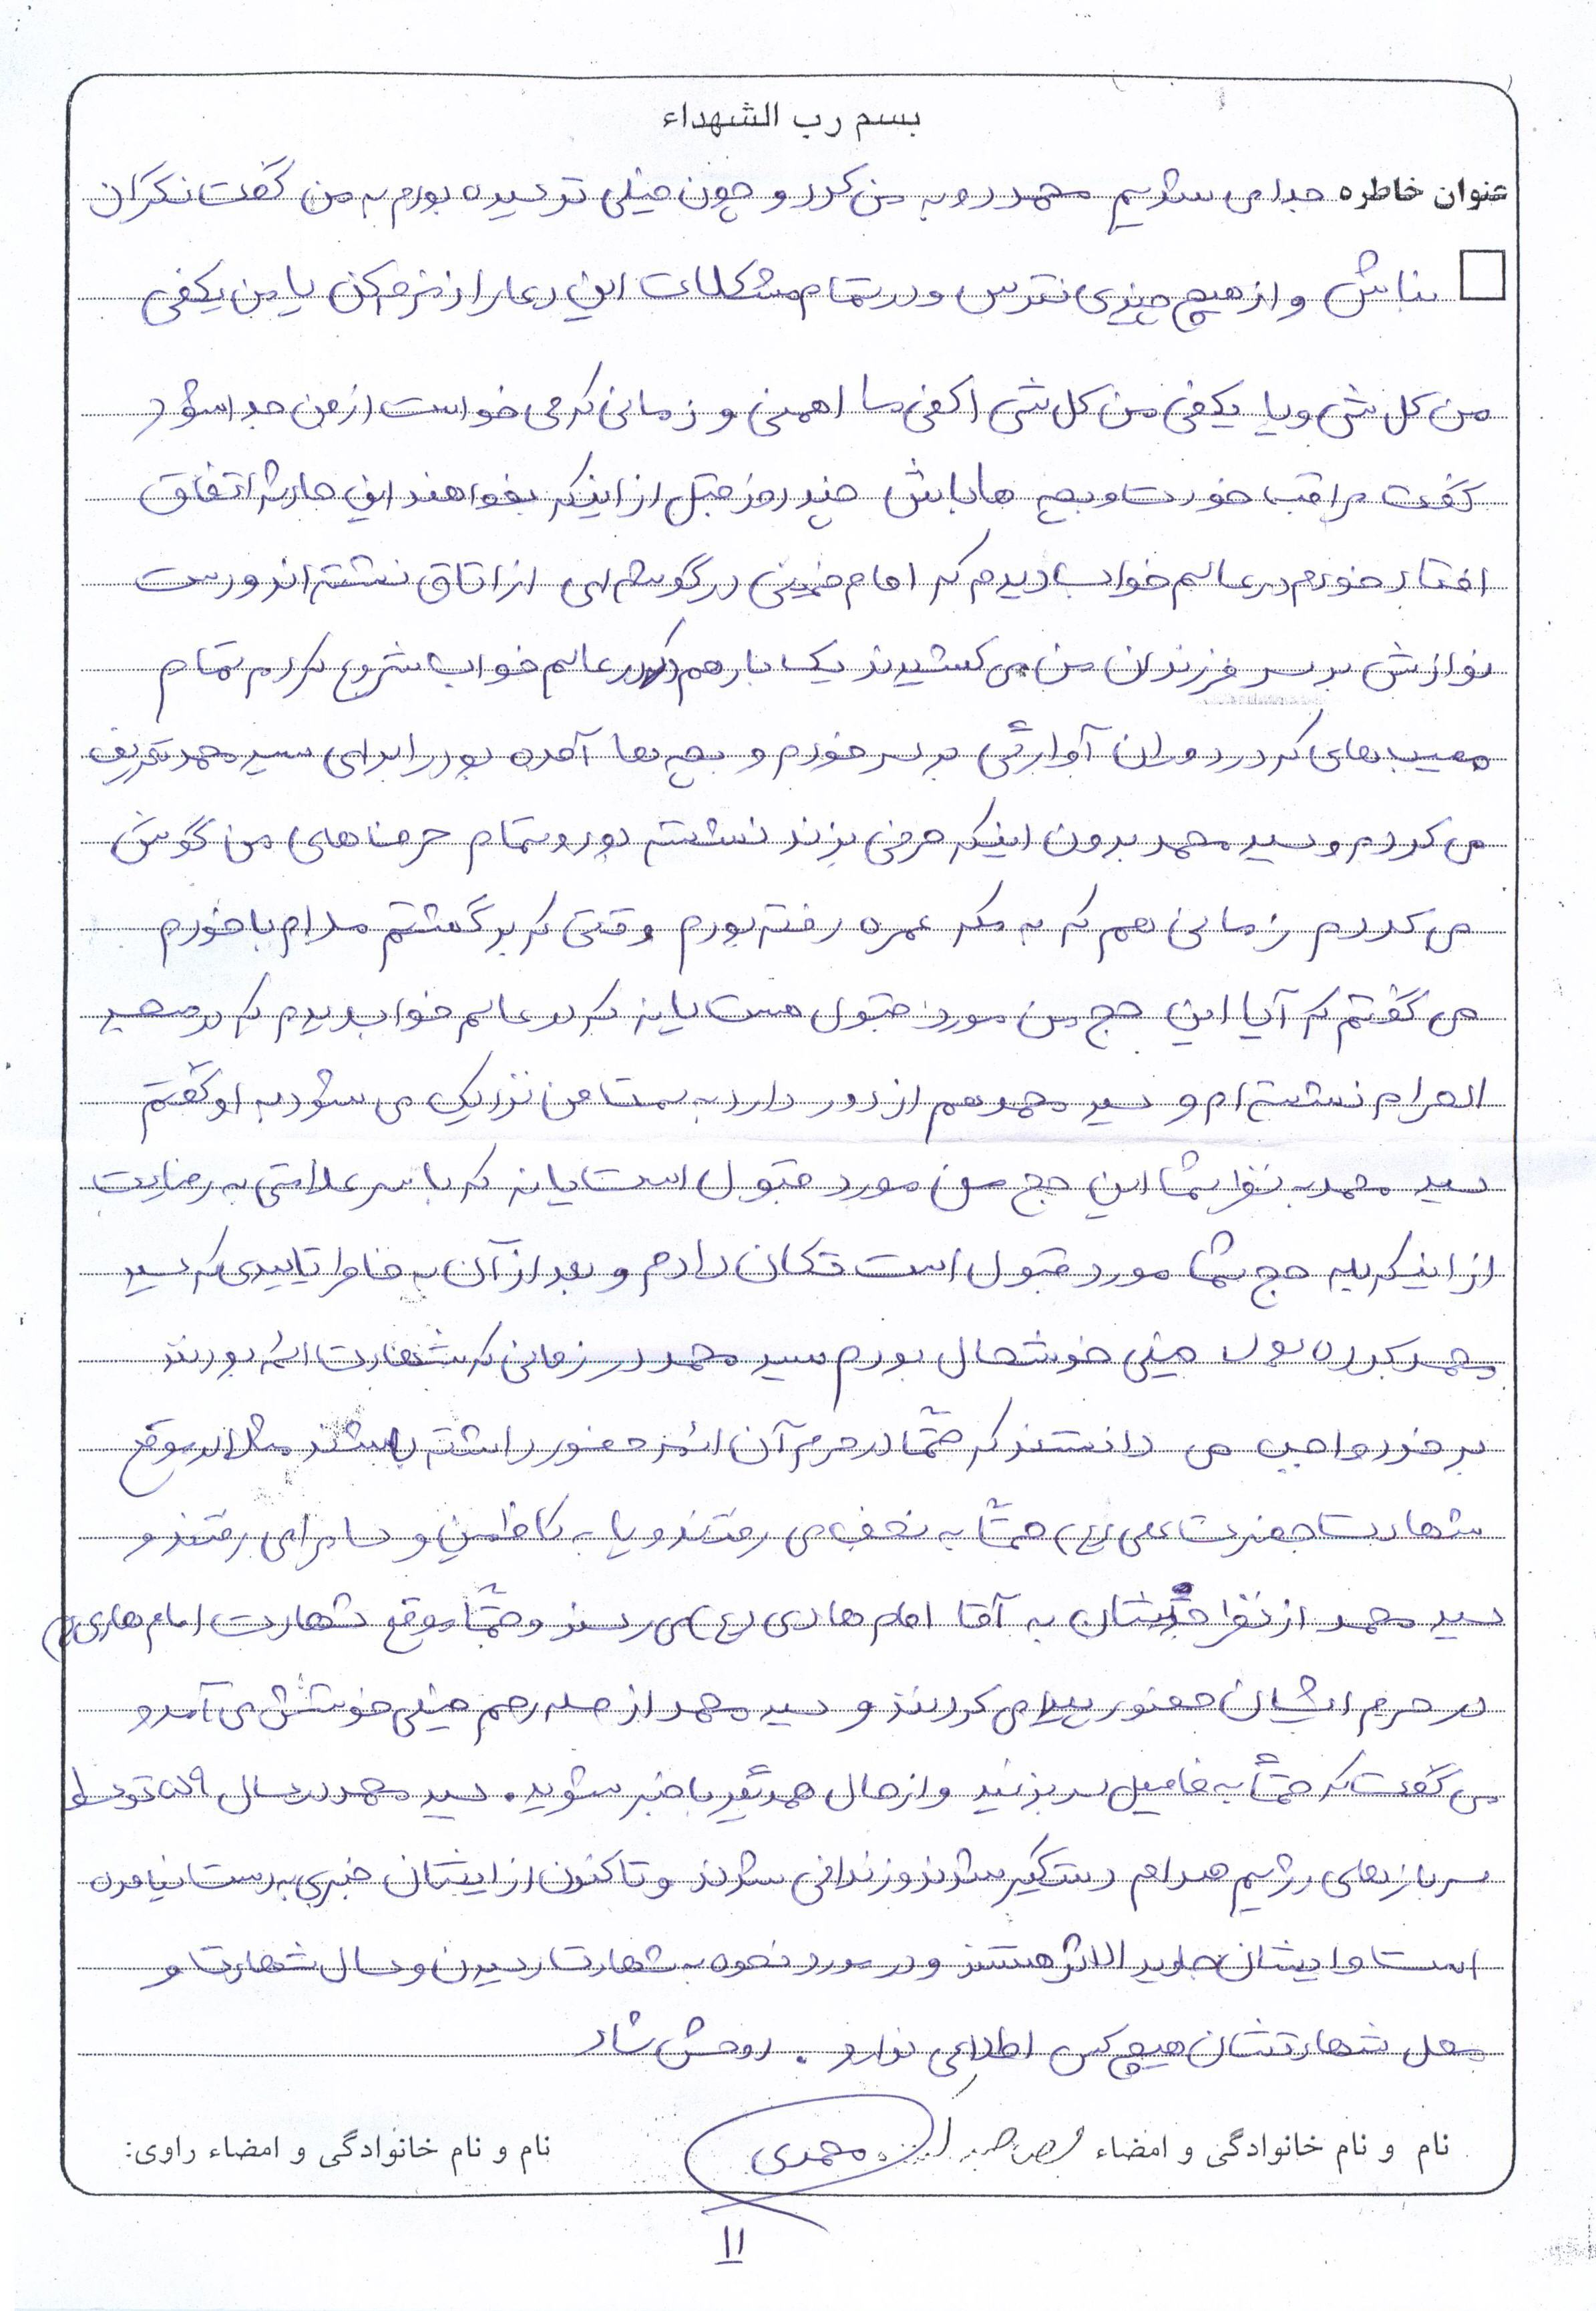 بسم رب الشهداء
عنوان خاطره جدا می شدیم محمد رو به من کرد و چون خیلی ترسیده بودم به من گفت نگران
نباش و از هیچ چیزی نترس و در تمام مشکلات این دعا را از بَر کن یا من یکفی
من کل شی و یا یکفی من کل شی اکفی ما اهمنی و زمانی که می خواست از من جدا شود
گفت مراقب خودت و بچه ها باش چند روز قبل از اینکه بخواهند این حادثه اتفاق
افتد خودم در عالم خواب دیدم که امام خمینی در گوشه ای از اتاق نشسته اند و دست
نوازش بر سر فرزندان من می کشیدند یک بار هم در عالم خواب شروع کردم تمام
مصیبت های که در دوران آوارگی بر سر خودم و بچه ها آمده بود را برای سید محمد تعریف
می کردم و سید محمد بدون اینکه حرفی بزند نشسته بود و تمام حرفهای من گوش
می کردم زمانی هم که به مکه عمره رفته بودم وقتی که برگشتم مدام با خودم
می گفتم که آیا این حج من مورد قبول هست یا نه که در عالم خواب دیدم که در مسجد
الحرام نشسته ام و سید محمد هم از دور دارد به سمت من نزدیک می شود به او گفتم
سید محمد به نظر شما این حج من مورد قبول است یا نه که با سر علامتی به رضایت
از اینکه بله حج شما مورد قبول است تکان دادم و بعد از آن به خاطر تاییدی که سید
محمد کرده بود خیلی خوشحال بودم سید محمد در زمانی که شهادت ائمه بودند
بر خود واجب می دانستند که حتماً در حرم آن ائمه حضور داشته باشند مثلا در موقع
شهادت حضرت علی (ع) حتماً به نجف می رفتند و یا به کاظمین و سامرا می رفتند و
سید محمد از نظر جدشان به آقا امام هادی (ع) می رسند و حتماً موقع شهادت امام هادی (ع)
در حرم ایشان حضور پیدا می کردند و سید محمد از صله رحم خیلی خوشش می آمد و
می گفت که حتماً به فامیل سر بزنید و از حال همدیگر با خبر شوید. سید محمد در سال ۵۹ توسط
سربازهای رژیم صدام دستگیر شدند و زندانی شدند و تا کنون از ایشان خبری به دست نیامده
است و ایشان جاوید الاثر هستند و در مورد نحوه به شهادت رسیدن و سال شهادت و
محل شهادتشان هیچ کس اطلاعی ندارد. روحش شاد
نام و نام خانوادگی و امضاء محمدی نام و نام خانوادگی و امضاء راوی:
۱۱